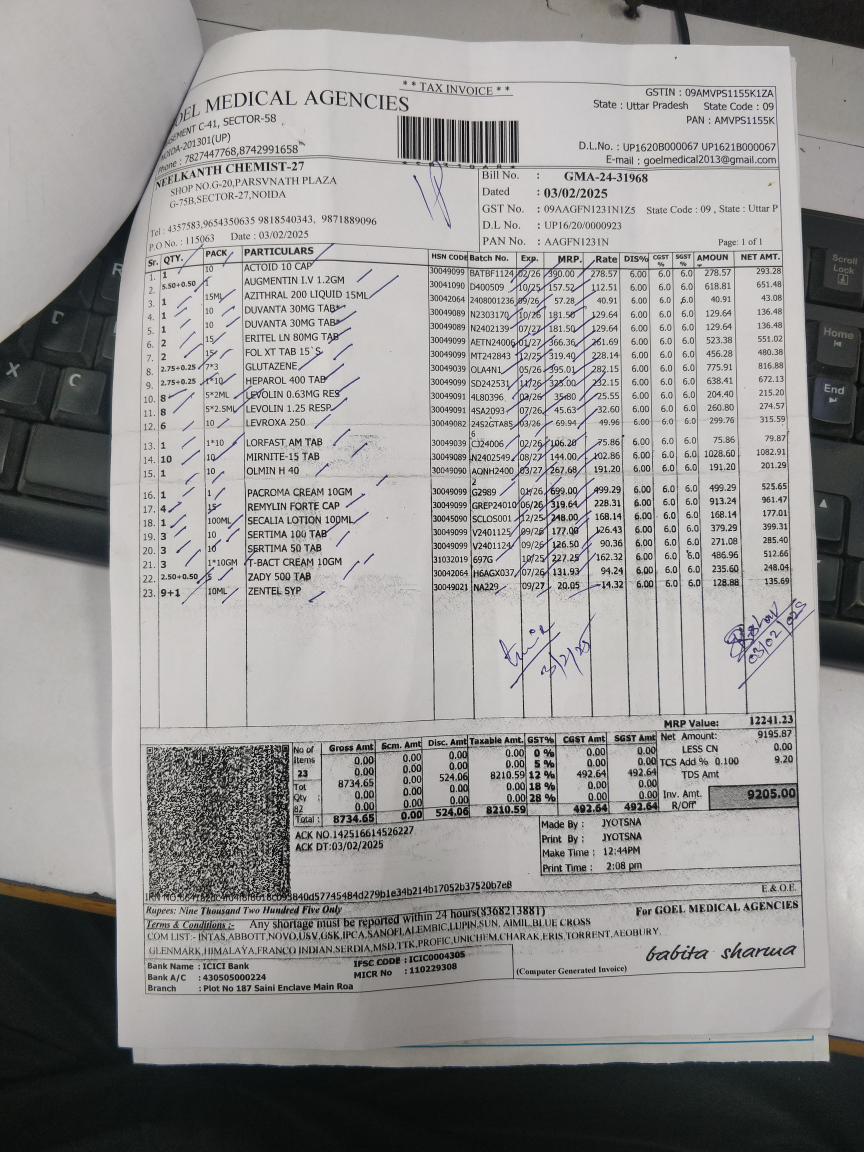 ** TAX INVOICE **
GOEL MEDICAL AGENCIES
C-41, SECTOR-58
NOIDA-201301(UP)
Phone : 7827447768,8742991658
GSTIN : 09AMVPS1155K1ZA
State : Uttar Pradesh State Code : 09
PAN : AMVPS1155K
D.L.No. : UP1620B000067 UP1621B000067
E-mail : goelmedical2013@gmail.com
NEELKANTH CHEMIST-27
SHOP NO.G-20,PARSVNATH PLAZA
G-75B,SECTOR-27,NOIDA
Tel : 4357583,9654350635 9818540343, 9871889096
P.O No. : 115063 Date : 03/02/2025
Bill No. : GMA-24-31968
Dated : 03/02/2025
GST No. : 09AAGFN1231N1Z5 State Code : 09 , State : Uttar P
D.L No. : UP16/20/0000923
PAN No. : AAGFN1231N Page: 1 of 1
Sr. QTY. PACK PARTICULARS HSN CODE Batch No. Exp. MRP. Rate DIS% CGST % SGST % AMOUN NET AMT.
1. 1 10 ACTOID 10 CAP 30049099 BATBF1124 02/26 390.00 278.57 6.00 6.0 6.0 278.57 293.28
2. 5.50+0.50 AUGMENTIN I.V 1.2GM 30041090 D400509 10/25 157.52 112.51 6.00 6.0 6.0 618.81 651.48
3. 1 15ML AZITHRAL 200 LIQUID 15ML 30042064 2408001236 09/26 57.28 40.91 6.00 6.0 6.0 40.91 43.08
4. 1 10 DUVANTA 30MG TAB* 30049089 N2303170 10/26 181.50 129.64 6.00 6.0 6.0 129.64 136.48
5. 1 10 DUVANTA 30MG TAB* 30049089 N2402139 07/27 181.50 129.64 6.00 6.0 6.0 129.64 136.48
6. 2 15 ERITEL LN 80MG TAB 30049099 AETN24006 01/27 366.36 261.69 6.00 6.0 6.0 523.38 551.02
7. 2 15 FOL XT TAB 15`S 30049099 MT242843 12/25 319.40 228.14 6.00 6.0 6.0 456.28 480.38
8. 2.75+0.25 7*3 GLUTAZENE 30049039 OLA4N1 05/26 395.01 282.15 6.00 6.0 6.0 775.91 816.88
9. 2.75+0.25 1*10 HEPAROL 400 TAB 30049099 SD242531 11/26 325.00 232.15 6.00 6.0 6.0 638.41 672.13
10. 8 5*2ML LEVOLIN 0.63MG RES 30049091 4L80396 03/26 35.80 25.55 6.00 6.0 6.0 204.40 215.20
11. 8 5*2.5ML LEVOLIN 1.25 RESP 30049091 4SA2093 07/26 45.63 32.60 6.00 6.0 6.0 260.80 274.57
12. 6 10 LEVROXA 250 30049082 24S2GTA85 03/26 69.94 49.96 6.00 6.0 6.0 299.76 315.59
6
13. 1 1*10 LORFAST AM TAB 30049039 CJ24006 02/26 106.20 75.86 6.00 6.0 6.0 75.86 79.87
14. 10 10 MIRNITE-15 TAB 30049089 N2402549 08/27 144.00 102.86 6.00 6.0 6.0 1028.60 1082.91
15. 1 10 OLMIN H 40 30049090 AQNH2400 03/27 267.68 191.20 6.00 6.0 6.0 191.20 201.29
2
16. 1 1 PACROMA CREAM 10GM 30049099 G2989 01/26 699.00 499.29 6.00 6.0 6.0 499.29 525.65
17. 4 15 REMYLIN FORTE CAP 30049099 GREP24010 06/26 319.64 228.31 6.00 6.0 6.0 913.24 961.47
18. 1 100ML SECALIA LOTION 100ML 30045090 SCLOS001 12/25 248.00 168.14 6.00 6.0 6.0 168.14 177.01
19. 3 10 SERTIMA 100 TAB 30049099 V2401125 09/26 177.00 126.43 6.00 6.0 6.0 379.29 399.31
20. 3 10 SERTIMA 50 TAB 30049099 V2401124 09/26 126.50 90.36 6.00 6.0 6.0 271.08 285.40
21. 3 1*10GM T-BACT CREAM 10GM 31032019 697G 10/25 227.25 162.32 6.00 6.0 6.0 486.96 512.66
22. 2.50+0.50 5 ZADY 500 TAB 30042064 H6AGX037 07/26 131.93 94.24 6.00 6.0 6.0 235.60 248.04
23. 9+1 10ML ZENTEL SYP 30049021 NA229 09/27 20.05 14.32 6.00 6.0 6.0 128.88 135.69
3/2/25
03/02/2025
MRP Value: 12241.23
No of Items 23 Tot Qty : 82
Gross Amt Scm. Amt Disc. Amt Taxable Amt. GST% CGST Amt SGST Amt
0.00 0.00 0.00 0.00 0 % 0.00 0.00
0.00 0.00 0.00 0.00 5 % 0.00 0.00
8734.65 0.00 524.06 8210.59 12 % 492.64 492.64
0.00 0.00 0.00 0.00 18 % 0.00 0.00
0.00 0.00 0.00 0.00 28 % 0.00 0.00
Total : 8734.65 0.00 524.06 8210.59 492.64 492.64
Net Amount: 9195.87
LESS CN 0.00
TCS Add % 0.100 9.20
TDS Amt
Inv. Amt. R/Off 9205.00
ACK NO.142516614526227
ACK DT:03/02/2025
Made By : JYOTSNA
Print By : JYOTSNA
Make Time : 12:44PM
Print Time : 2:08 pm
E.& O.E.
Rupees: Nine Thousand Two Hundred Five Only
For GOEL MEDICAL AGENCIES
Terms & Conditions :- Any shortage must be reported within 24 hours(8368213881)
COM LIST:- INTAS,ABBOTT,NOVO,USV,GSK,IPCA,SANOFI,ALEMBIC,LUPIN,SUN, AIMIL,BLUE CROSS
GLENMARK,HIMALAYA,FRANCO INDIAN,SERDIA,MSD,TTK,PROFIC,UNICHEM,CHARAK,ERIS,TORRENT,AEOBURY.
Bank Name : ICICI Bank IFSC CODE : ICIC0004305
Bank A/C : 430505000224 MICR No : 110229308
Branch : Plot No 187 Saini Enclave Main Roa
(Computer Generated Invoice)
babita sharma
Scroll
Lock
Home
End
X
C